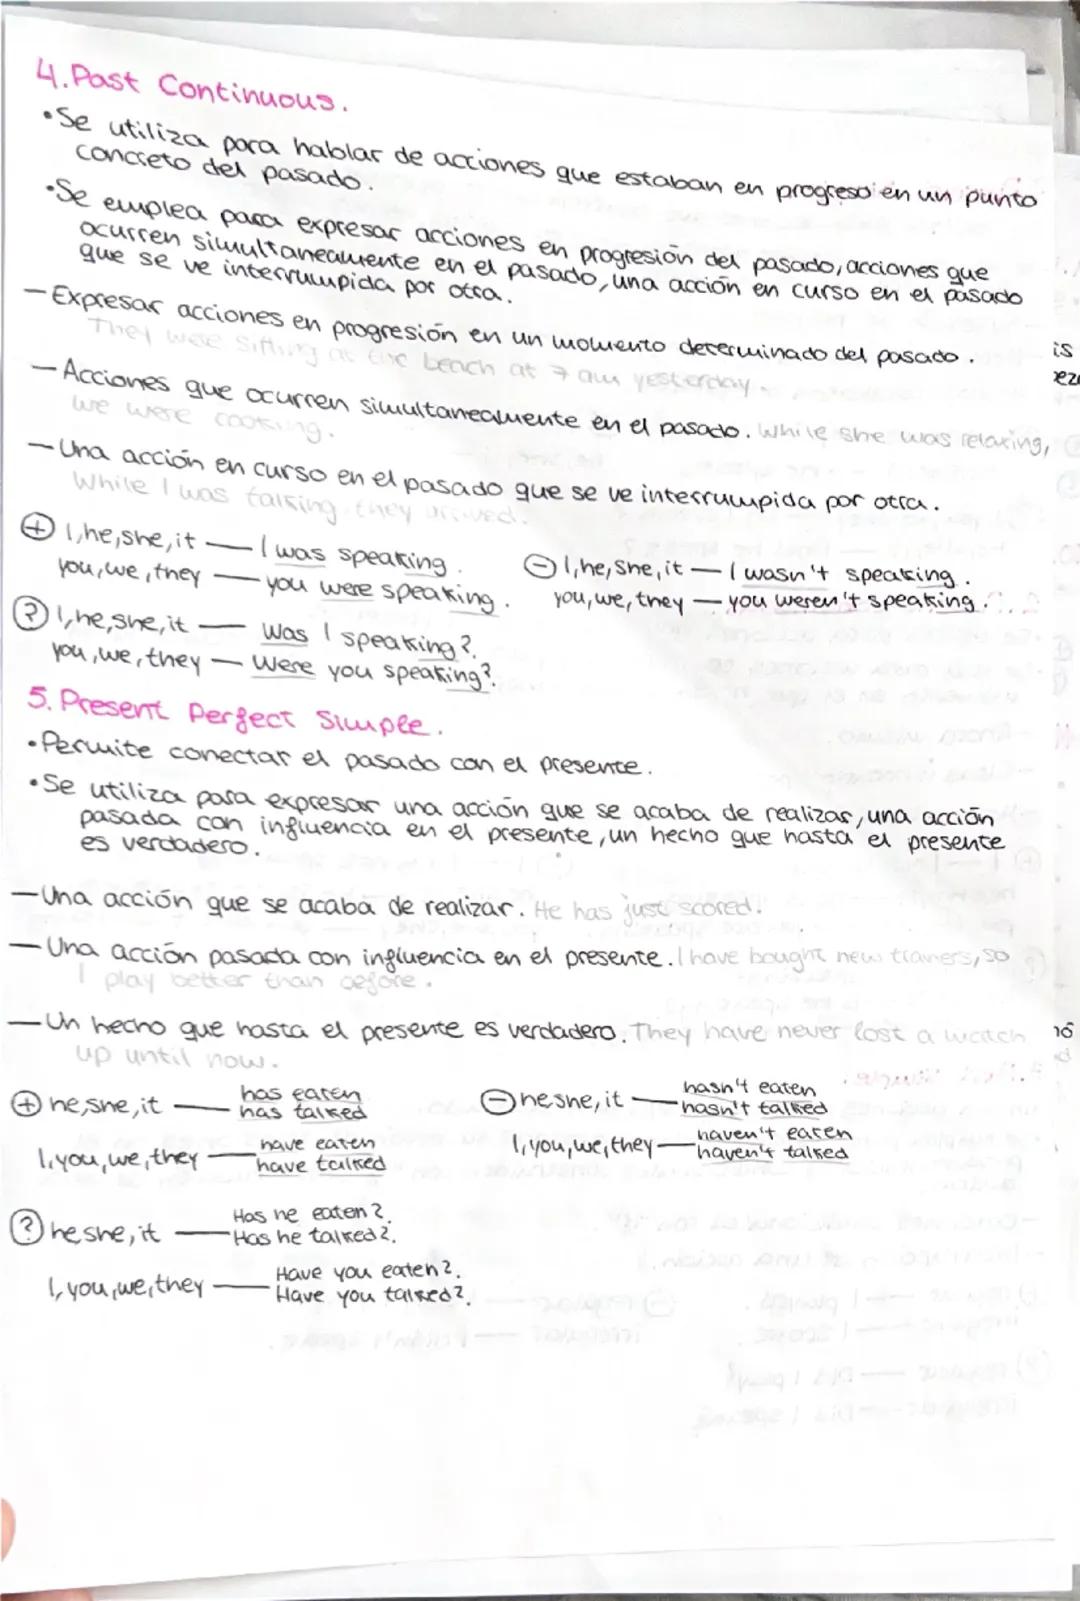 4. Past Continuous.
•Se utiliza para hablar de acciones que estaban en progreso en un punto
concreto del pasado.
•Se emplea para expresar acciones en progresión del pasado, acciones que
ocurren simultaneamente en el pasado, una acción en curso en el pasado
que se ve interrumpida por otra.
— Expresar acciones en progresión en un momento determinado del pasado.
They were sitting at the beach at 7 am yesterday.
— Acciones que ocurren simultaneamente en el pasado. While she was relaxing,
we were cooking.
— Una acción en curso en el pasado que se ve interrumpida por otra.
While I was talking, they arrived.
+ I, he, she, it — I was speaking.
you, we, they — you were speaking.
- I, he, she, it — I wasn't speaking.
you, we, they — you weren't speaking.
? I, he, she, it — Was I speaking?.
you, we, they — Were you speaking?.
5. Present Perfect Simple.
•Permite conectar el pasado con el presente.
•Se utiliza para expresar una acción que se acaba de realizar, una acción
pasada con influencia en el presente, un hecho que hasta el presente
es verdadero.
— Una acción que se acaba de realizar. He has just scored.
— Una acción pasada con influencia en el presente. I have bought new trainers, so
I play better than before.
— Un hecho que hasta el presente es verdadero. They have never lost a watch
up until now.
+ he, she, it — has eaten
has talked
I, you, we, they — have eaten
have talked
- he, she, it — hasn't eaten
hasn't talked
I, you, we, they — haven't eaten
haven't talked
? he, she, it — Has he eaten?.
Has he talked?.
I, you, we, they — Have you eaten?.
Have you talked?.